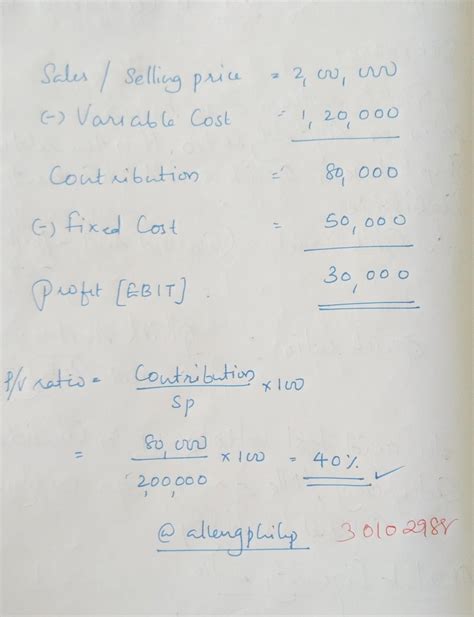 Sales / Selling price = 2,00,000
(-) Variable Cost = 1,20,000
Contribution = 80,000
(-) Fixed Cost = 50,000
Profit [EBIT] 30,000
P/V ratio = Contribution / SP × 100
= 80,000 / 2,00,000 × 100 = 40%. ✓
@ allengphilip 30102988